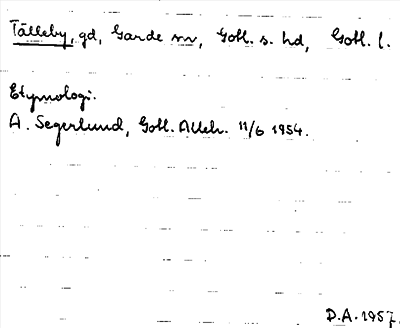 Tälleby, gd, Garde sn, Gotl. s. hd, Gotl. l.
Etymologi.
A. Segerlund, Gotl. Alleh. 11/6 1954.
D.A. 1957.